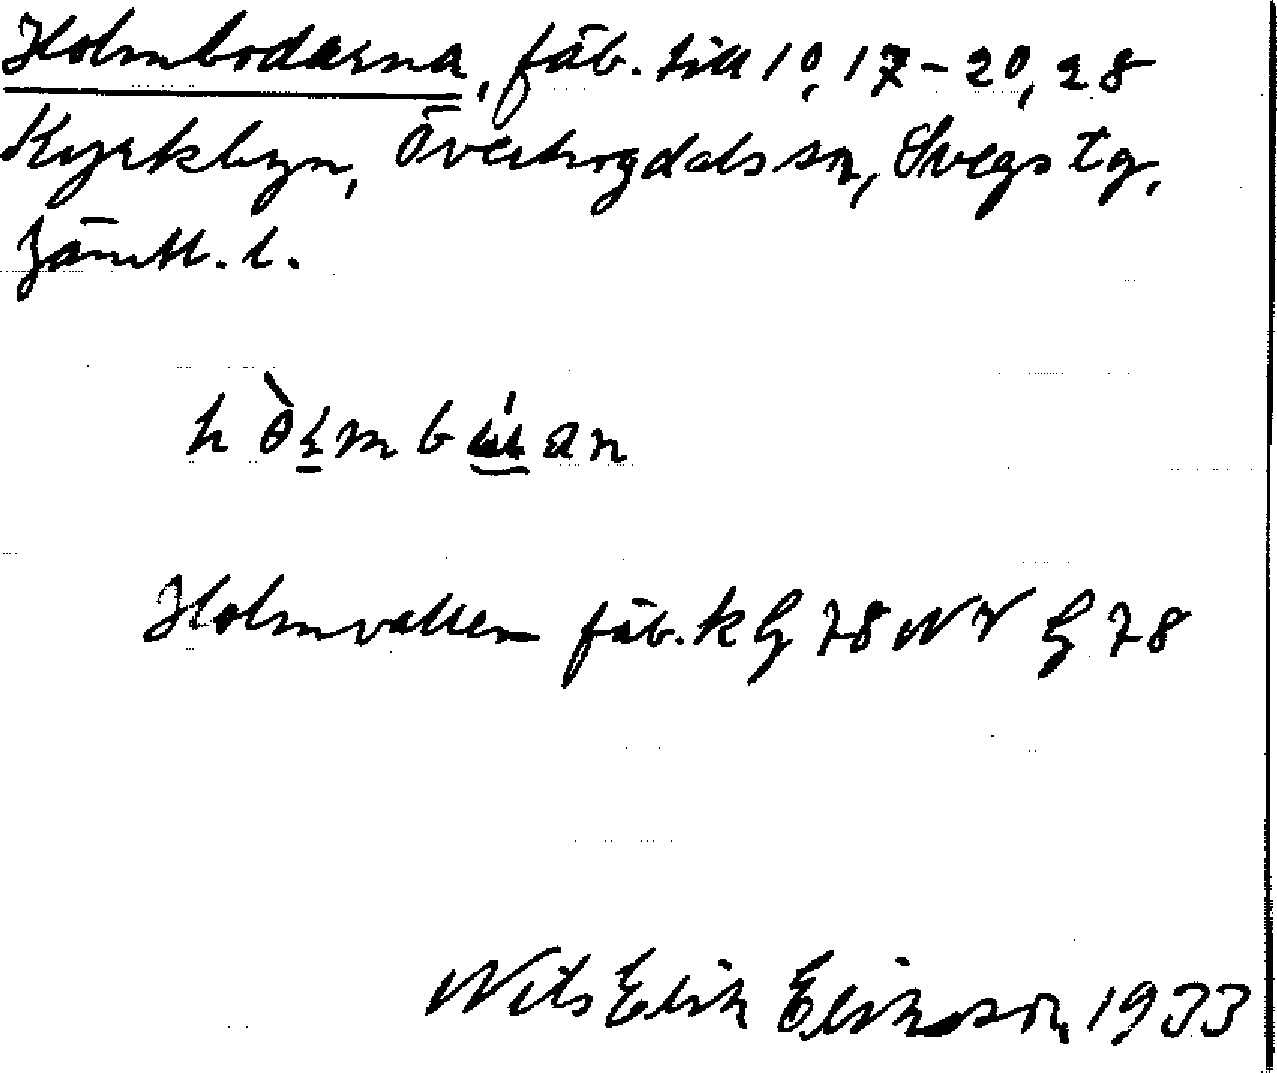 Holmbodarna, fäb. till 10, 17-20, 28
Kyrkbyn, Överhogdals sn, Svegs tg,
Jämtl. l.
Holmvallen fäb. k G 78 NV G 78
Nils Erik Eriksson, 1933